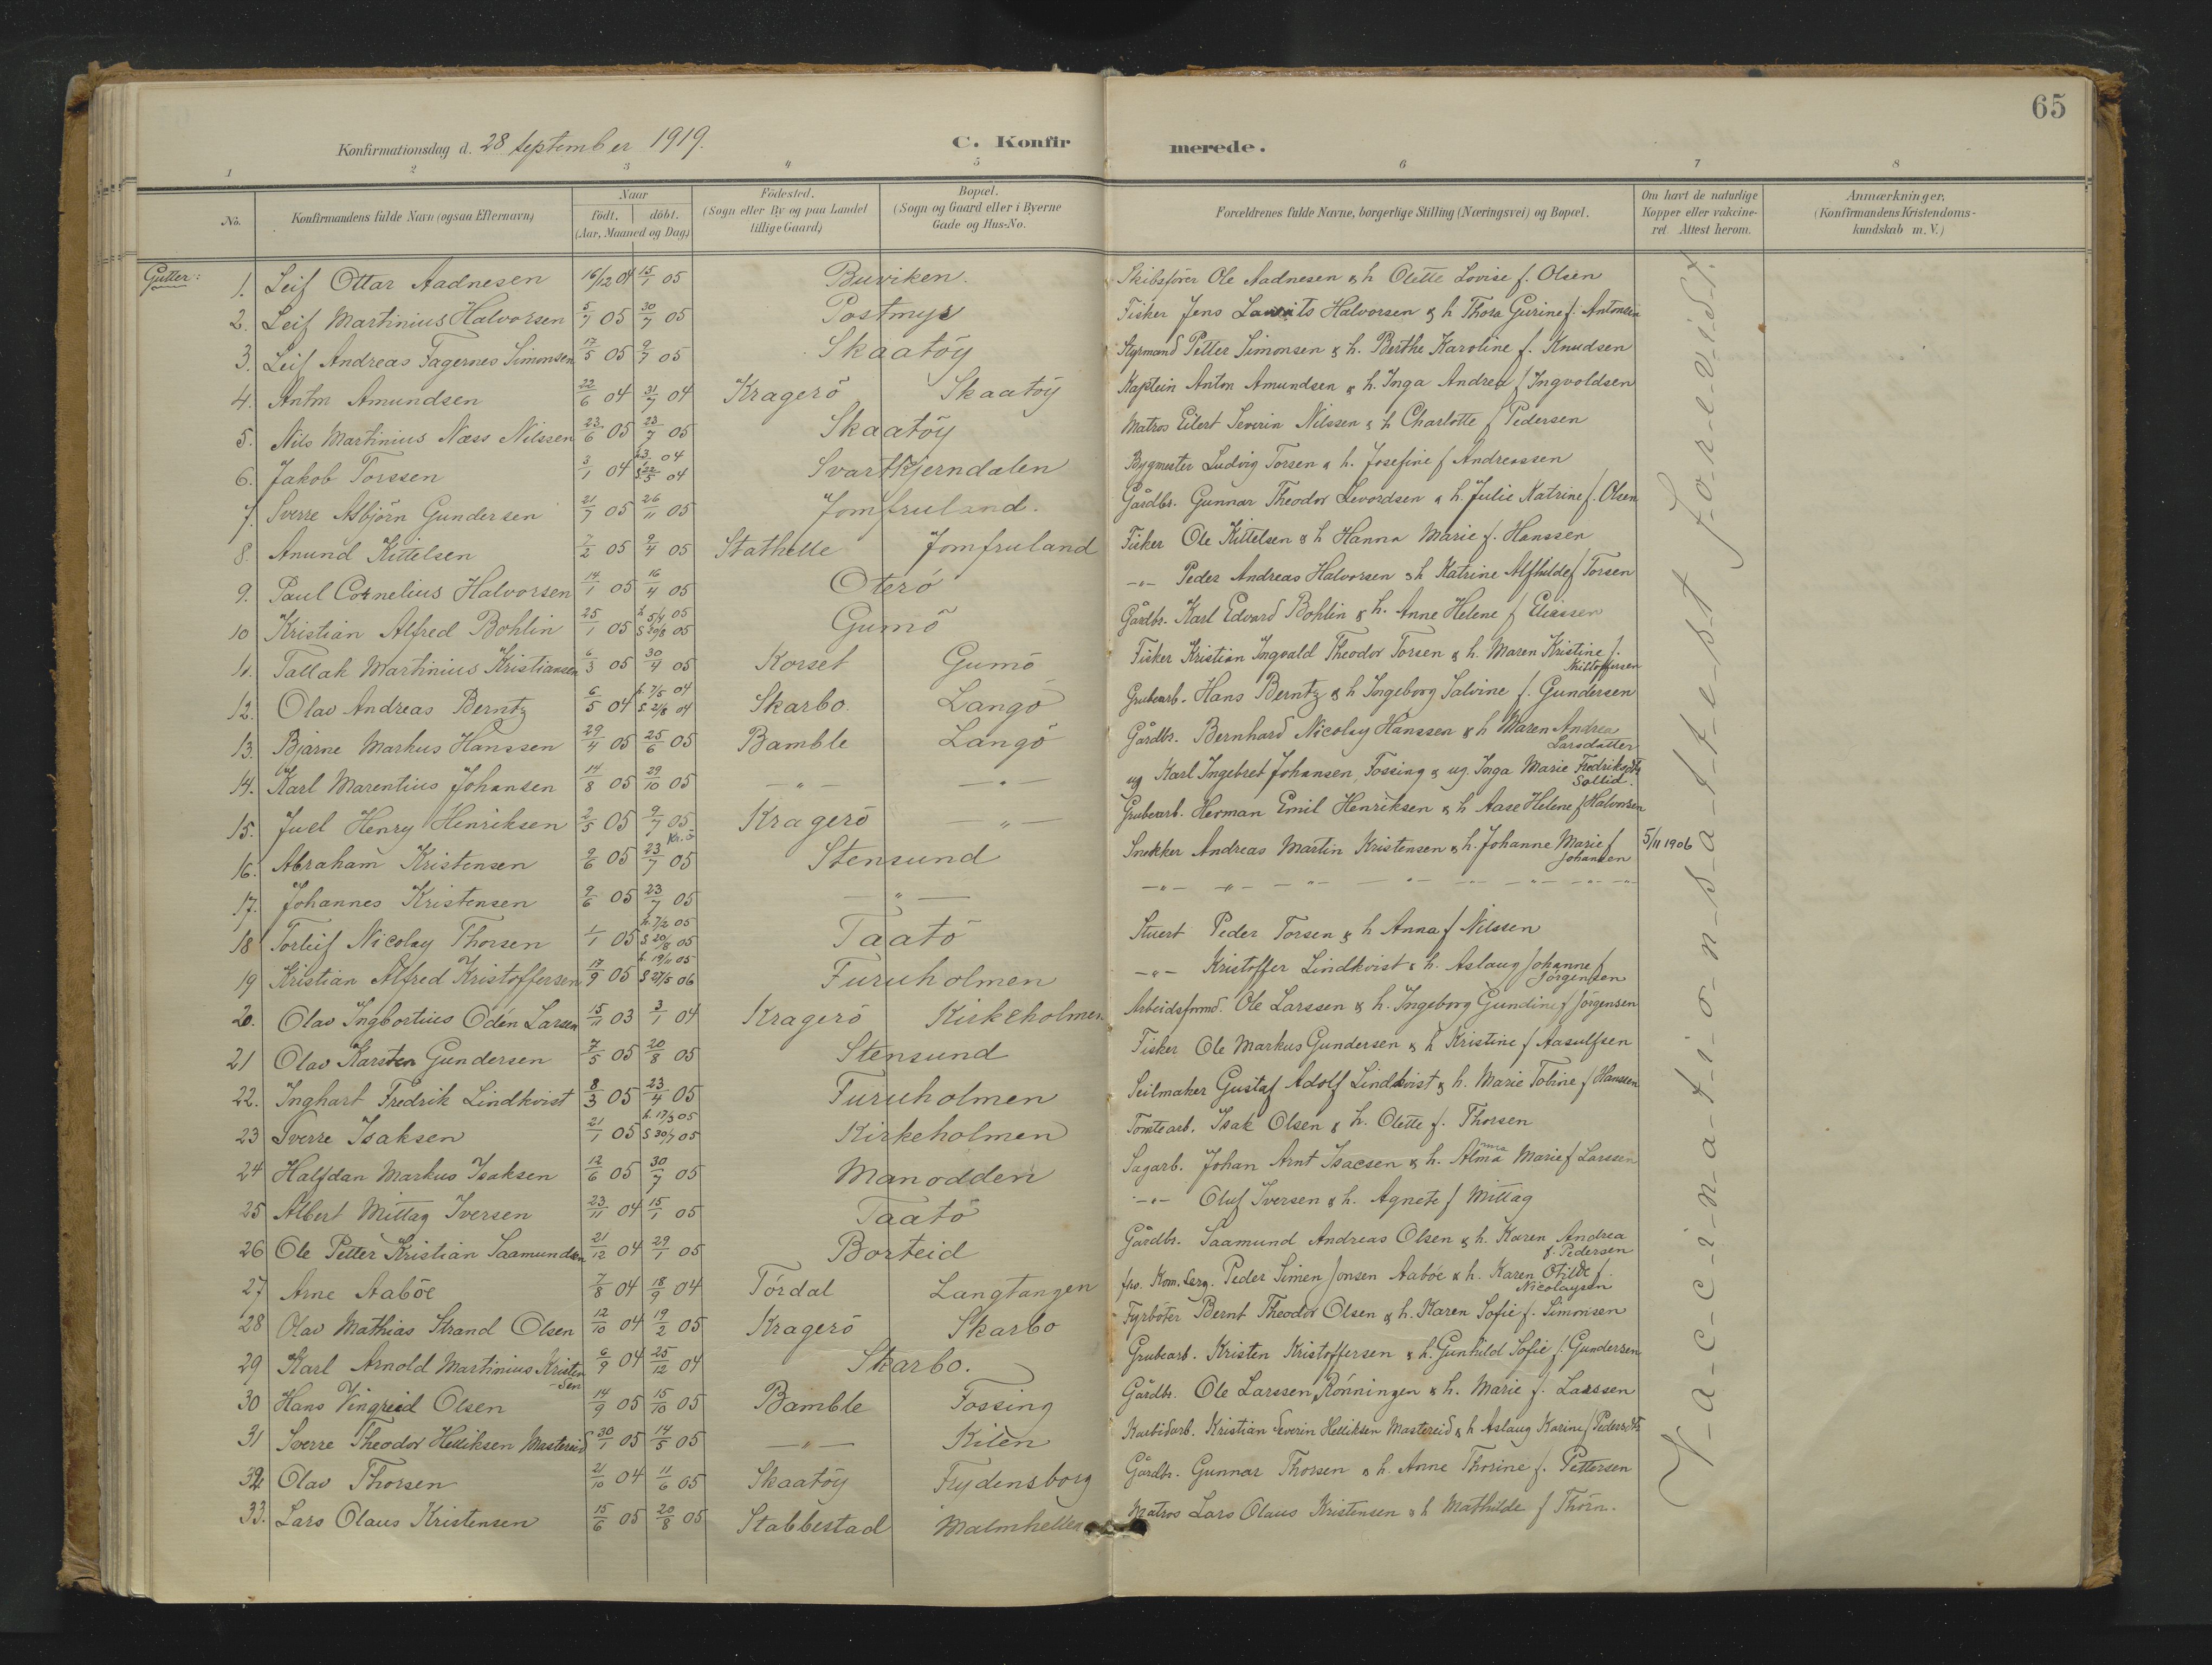 65
Konfirmationsdag d. 28 september 1919.
C. Konfirmerede.
1 2 3 4 5 6 7 8
No. Konfirmandens fulde Navn (ogsaa Efternavn) Naar födt. döbt. (Aar, Maaned og Dag) Födested. (Sogn eller By og paa Landet tillige Gaard) Bopæl. (Sogn og Gaard eller i Byerne Gade og Hus-No. Forældrenes fulde Navne, borgerlige Stilling (Næringsvei) og Bopæl. Om havt de naturlige Kopper eller vakcineret Attest herom. Anmærkninger, (Konfirmandens Kristendomskundskab m.V.)
Gutter:
1. Leif Ottar Aadnesen 16/12 04 15/1 05 Buviken. Skibsfører Ole Aadnesen & h Olette Lovise f. Olsen
2. Leif Martinius Halvorsen 5/7 05 30/7 05 Postmyr Fisker Jens Laurits Halvorsen & h Thora Gurine f. Antonsen
3. Leif Andreas Fagernes Simonsen 17/5 05 9/7 05 Skaatöy Styrmand Petter Simonsen & h. Berthe Karoline f. Knudsen
4. Anton Amundsen 22/6 04 31/7 04 Kragerö Skaatöy Kaptein Anton Amundsen & h. Inga Andrea f Ingvoldsen
5. Nils Martinius Næss Nilssen 23/6 05 23/7 05 Skaatöy Matros Eilert Severin Nilssen & h Charlotte f Pedersen
6. Jakob Torssen 3/1 04 04 S 22/5 04 Svartkjerndalen Bygmester Ludvig Torsen & h. Josefine f Andreassen
7. Sverre Asbjörn Gundersen 21/7 05 26/11 05 Jomfruland. Gårdbr. Gunnar Theodor Levordsen & h. Julie Katrine f. Olsen
8. Anund Kittelsen 7/2 05 9/4 05 Stathelle Jomfruland Fisker Ole Kittelsen & h Hanna Marie f. Hanssen
9. Paul Cornelius Halvorsen 14/1 05 16/4 05 Oterö -"- Peder Andreas Halvorsen & h Katrine Alfhilde f Torsen
10 Kristian Alfred Bohlin 25/1 05 h 5/4 05 S 20/8 05 Gumö Gårdbr. Karl Edvard Bohlin & h. Anne Helene f Eliassen
11. Tallak Martinius Kristiansen 6/3 05 30/4 05 Korset Gumö Fisker Kristian Ingvald Theodor Torsen & h. Maren Kristine f. Kristoffersen
12. Olav Andreas Berntz 6/5 04 h. 7/5 04 S 21/8 04 Skarbo. Langö Grubearb. Hans Berntz & h Ingeborg Salvine f. Gundersen
13 Bjarne Markus Hanssen 29/4 05 25/6 05 Bamble Langö Gårdbr. Bernhard Nicolay Hanssen & h Maren Andrea Larsdatter
14. Karl Marentius Johansen 14/8 05 29/10 05 -"- -"- ug Karl Ingebret Johansen, Fossing & ug. Inga Marie Fredriksdtr Sollid.
15. Juel Henry Henriksen 2/5 05 9/7 05 Kr.ö Kragerö -"- Grubearb. Herman Emil Henriksen & h Aase Helene f Halvorsen
16. Abraham Kristensen 9/6 05 23/7 05 Stensund Snekker Andreas Martin Kristensen & h. Johanne Marie f Johansen 5/11 1906
17. Johannes Kristensen 9/6 05 23/7 05 -"- -"- -"- -"- -"- -"- -"- -"-
18 Torleif Nicolay Thorsen 1/1 05 h. 7/2 05 S 20/8 05 Taatö Stuert Peder Torsen & h Anna f Nilssen
19 Kristian Alfred Kristoffersen 17/9 05 h. 19/11 05 S 27/5 06 Furuholmen -"- Kristoffer Lindkvist & h. Aslaug Johanne f Jörgensen
20. Olav Ingbortius Odén Larsen 15/11 03 3/1 04 Kragerö Kirkeholmen Arbeidsfmd. Ole Larssen & h. Ingeborg Gundine f Jörgensen
21 Olav Karsten Gundersen 7/5 05 20/8 05 Stensund Fisker Ole Markus Gundersen & h Kristine f Aasulfsen
22. Inghart Fredrik Lindkvist 8/3 05 23/4 05 Furuholmen Seilmaker Gustaf Adolf Lindkvist & h. Marie Tobine f Hanssen
23 Sverre Isaksen 21/1 05 h. 17/3 05 S 30/7 05 Kirkeholmen Tomtearb. Isak Olsen & h. Olette f. Thorsen
24 Halfdan Markus Isaksen 12/6 05 30/7 05 Manodden Sagarb. Johan Arnt Isacsen & h. Alma Marie f Larssen
25 Albert Mittag Iversen 23/11 04 15/1 05 Taatö -"- Oluf Iversen & h. Agnete f Mittag
26 Ole Petter Kristian Saamundsen 21/12 04 29/1 05 Borteid Gårdbr. Saamund Andreas Olsen & h. Karen Andrea f. Pedersen
27 Arne Aaböe 7/8 04 18/9 04 Tördal Langtangen Kom. Serg. Peder Simen Jonsen Aaböe & h. Karen Otilde f. Nicolaysen
28 Olav Mathias Strand Olsen 12/10 04 19/2 05 Kragerö Skarbo Fyrböter Bernt Theodor Olsen & h. Karen Sofie f. Simonsen
29 Karl Arnold Martinius Kristensen 6/9 04 25/12 04 Skarbo. Grubearb. Kristen Kristoffersen & h. Gunhild Sofie f. Gundersen
30 Hans Vingreid Olsen 14/9 05 15/10 05 Bamble Fossing Gårdbr. Ole Larssen Rönningen & h. Marie f. Larssen
31 Sverre Theodor Helliksen Mastereid 30/1 05 14/5 05 -"- Kilen Karbidarb. Kristian Severin Helliksen Mastereid & h Aslaug Karine f Pedersdtr
32 Olav Thorsen 21/10 04 11/6 05 Skaatöy Frydensborg Gårdbr. Gunnar Thorsen & h. Anne Thorine f. Pettersen
33. Lars Olaus Kristensen 15/6 05 20/8 05 Stabbestad Malmhella Matros Lars Olaus Kristensen & h Mathilde f Thorn.
V-a-c-c-i-n-a-t-i-o-n-s-a-t-t-e-s-t f-o-r-e-v-i-s-t.